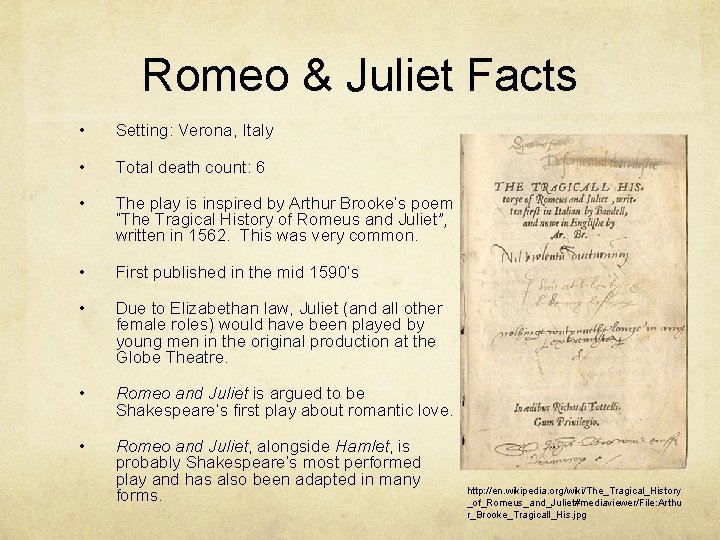 Romeo & Juliet Facts
• Setting: Verona, Italy
• Total death count: 6
• The play is inspired by Arthur Brooke's poem
"The Tragical History of Romeus and Juliet",
written in 1562. This was very common.
• First published in the mid 1590's
• Due to Elizabethan law, Juliet (and all other
female roles) would have been played by
young men in the original production at the
Globe Theatre.
• Romeo and Juliet is argued to be
Shakespeare's first play about romantic love.
• Romeo and Juliet, alongside Hamlet, is
probably Shakespeare's most performed
play and has also been adapted in many
forms.
THE TRAGICALL HIS-
torye of Romeus and Iuliet, writ-
ten first in Italian by Bandell,
and nowe in Englishe by
Ar. Br.
In ædibus Richardi Tottelli.
Cum Priuilegio.
http://en.wikipedia.org/wiki/The_Tragical_History
_of_Romeus_and_Juliet#mediaviewer/File:Arthu
r_Brooke_Tragicall_His.jpg